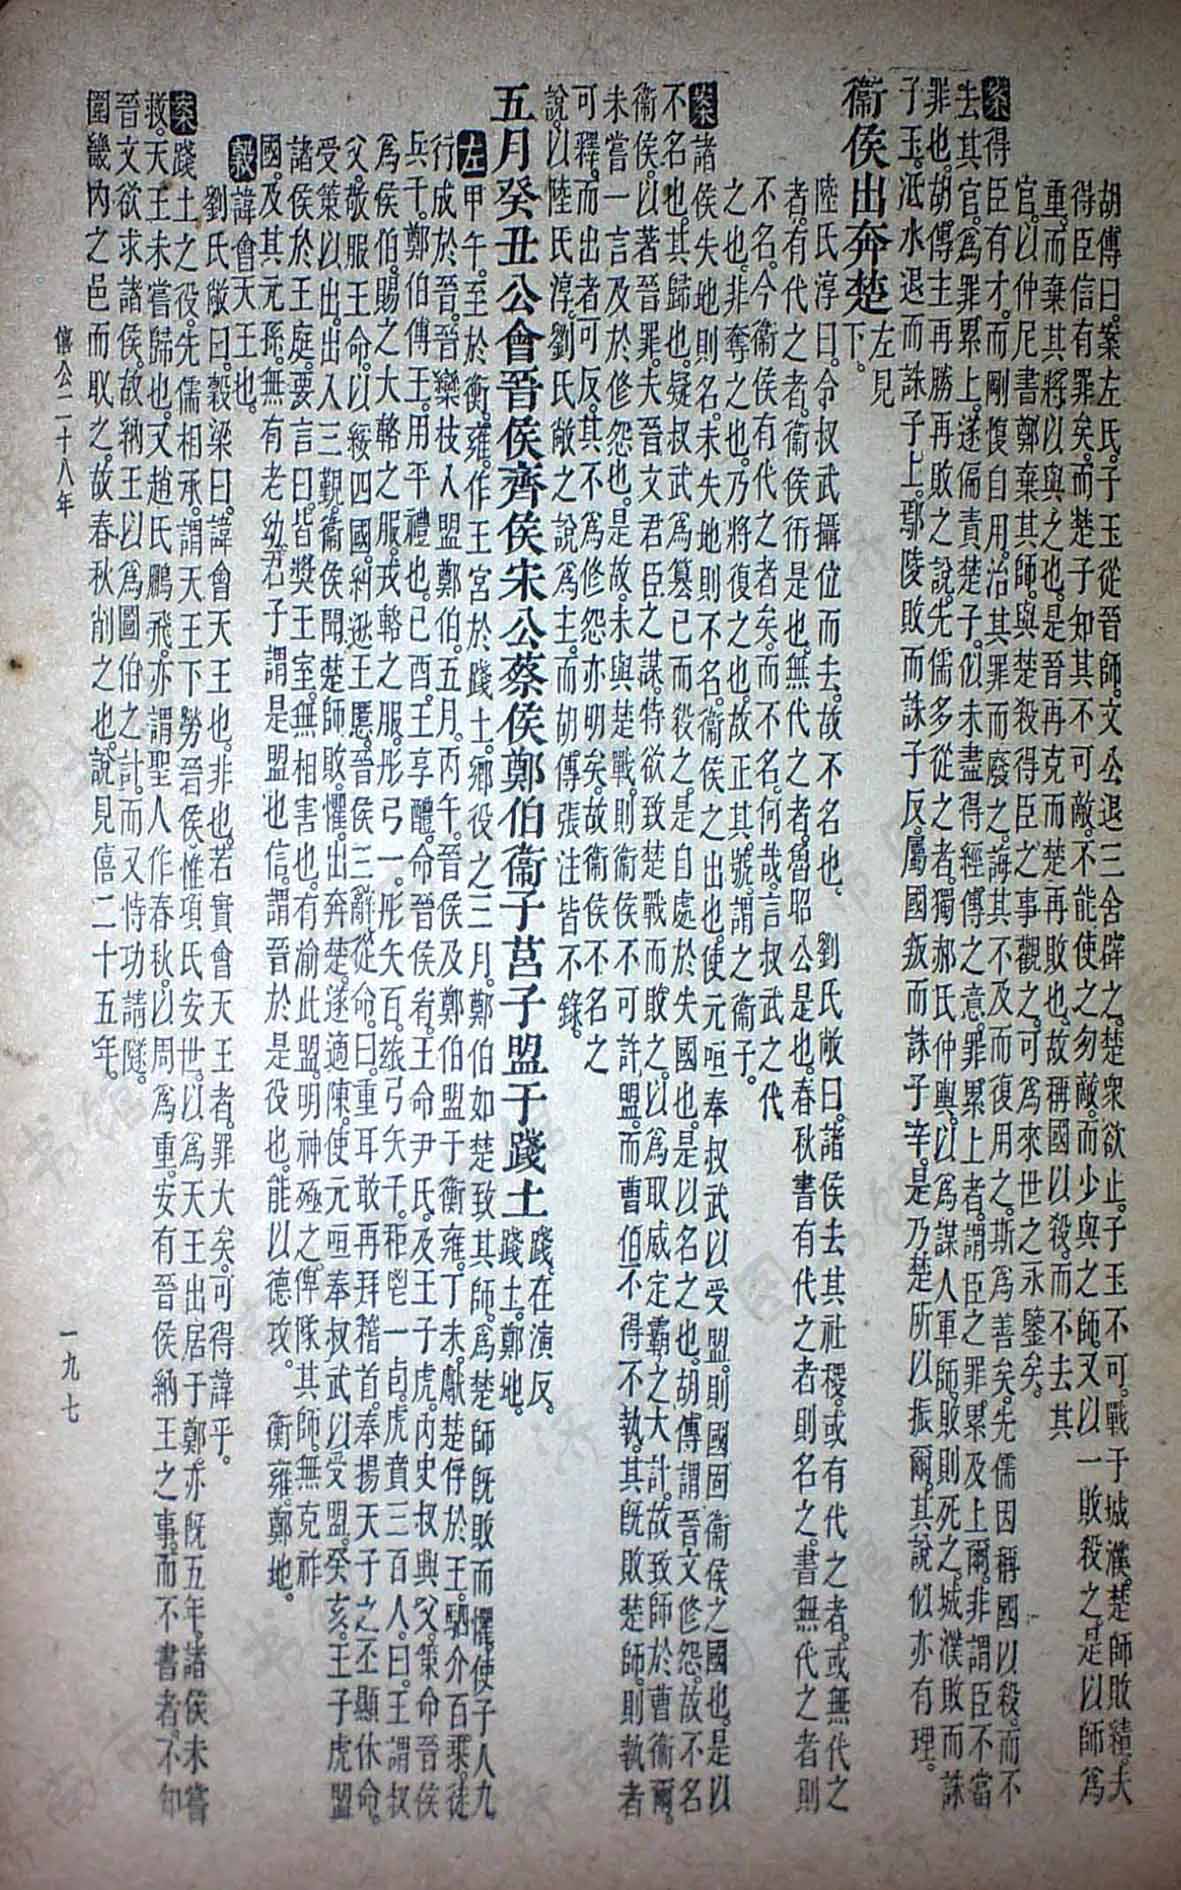 胡傳曰。案左氏。子玉從晉師。文公退三舍辟之。楚眾欲止。子玉不可。戰于城濮。楚師敗績。夫
得臣信有罪矣。而楚子知其不可敵。不能使之勿敵。而少與之師。又以一敗殺之。是以師爲
重。而棄其將以與之也。是晉再克而楚再敗也。故稱國以殺。而不去其
官。以仲尼書鄭棄其師。與楚殺得臣之事觀之。可爲來世之永鑒矣。
案得臣有才。而剛愎自用。治其罪而廢之。誨其不及而復用之。斯爲善矣。先儒因稱國以殺。而不
去其官。爲罪累上。遂偏責楚子。似未盡得經傳之意。罪累上者。謂臣之罪累及上爾。非謂臣不當
罪也。胡傳主再勝再敗之說。先儒多從之者。獨郝氏仲輿。以爲謀人軍師。敗則死之。城濮敗而誅
子玉。泜水退而誅子上。鄢陵敗而誅子反。屬國叛而誅子辛。是乃楚所以振爾。其說似亦有理。
衞侯出奔楚左見下。
陸氏淳曰。令叔武攝位而去。故不名也。　劉氏敞曰。諸侯去其社稷。或有代之者。或無代之
者。有代之者。衞侯衎是也。無代之者。魯昭公是也。春秋書有代之者則名之。書無代之者則
不名。今衞侯有代之者矣。而不名。何哉。言叔武之代
之也。非奪之也。乃將復之也。故正其號。謂之衞子。
案諸侯失地則名。未失地則不名。衞侯之出也。使元咺奉叔武以受盟。則國固衞侯之國也。是以
不名也。其歸也。疑叔武爲篡己而殺之。是自處於失國也。是以名之也。胡傳謂晉文修怨。故不名
衞侯。以著晉罪。夫晉文君臣之謀。特欲致楚戰而敗之。以爲取威定霸之大計。故致師於曹衞爾。
未嘗一言及於修怨也。是故未與楚戰。則衞侯不可許盟。而曹伯不得不執。其既敗楚師。則執者
可釋。而出者可反。其不爲修怨亦明矣。故衞侯不名之
說。以陸氏淳。劉氏敞之說爲主。而胡傳張注皆不錄。
五月癸丑公會晉侯齊侯宋公蔡侯鄭伯衞子莒子盟于踐土踐。在演反。踐土。鄭地。
左甲午。至於衡雍。作王宮於踐土。鄉役之三月。鄭伯如楚致其師。爲楚師既敗而懼。使子人九
行成於晉。晉欒枝入盟鄭伯。五月。丙午。晉侯及鄭伯盟于衡雍。丁未。獻楚俘於王。駟介百乘。徒
兵千。鄭伯傅王。用平禮也。己酉。王享醴。命晉侯宥。王命尹氏。及王子虎。內史叔興父。策命晉侯
爲侯伯。賜之大輅之服。戎輅之服。彤弓一。彤矢百。玈弓矢千。秬鬯一卣。虎賁三百人。曰。王謂叔
父。敬服王命。以綏四國。糾逖王慝。晉侯三辭。從命。曰。重耳敢再拜稽首。奉揚天子之丕顯休命。
受策以出。出入三覲。衞侯聞楚師敗。懼。出奔楚。遂適陳。使元咺奉叔武以受盟。癸亥。王子虎盟
諸侯於王庭。要言曰。皆獎王室。無相害也。有渝此盟。明神殛之。俾隊其師。無克祚
國。及其元孫。無有老幼。君子謂是盟也信。謂晉於是役也。能以德攻。　衡雍。鄭地。
穀諱會天王也。
劉氏敞曰。穀梁曰。諱會天王也。非也。若實會天王者。罪大矣。可得諱乎。
案踐土之役。先儒相承。謂天王下勞晉侯。惟項氏安世。以爲天王出居于鄭。亦既五年。諸侯未嘗
救。天王未嘗歸也。又趙氏鵬飛。亦謂聖人作春秋。以周爲重。安有晉侯納王之事。而不書者。不知
晉文欲求諸侯。故納王以爲圖伯之計。而又恃功請隧。
圍畿內之邑而取之。故春秋削之也。說見僖二十五年。
僖公二十八年
一九七